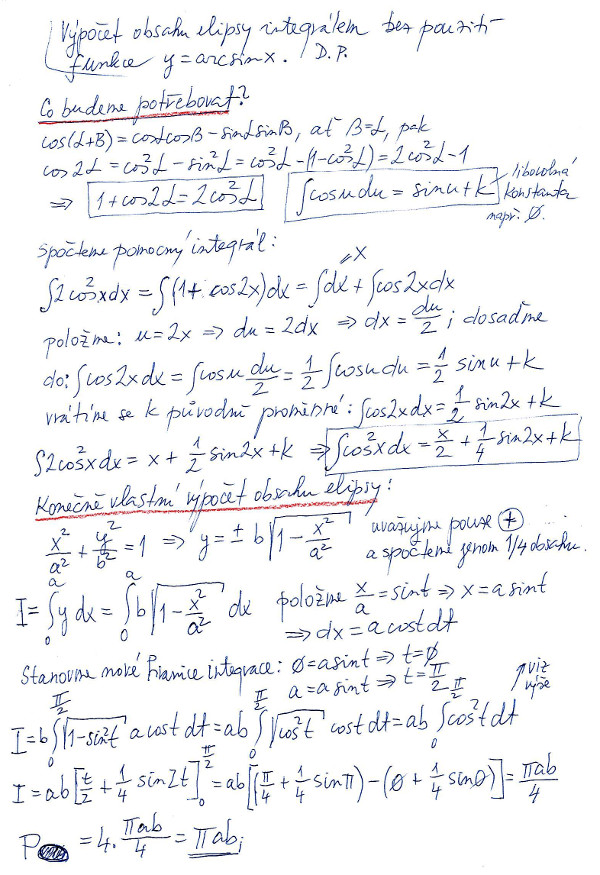 Výpočet obsahu elipsy integrálem bez použití
funkce y = arcsin x. D.P.
Co budeme potřebovat?
cos(α+β) = cosα cosβ − sinα sinβ, ať β=α, pak
cos 2α = cos²α − sin²α = cos²α − (1−cos²α) = 2cos²α − 1
⇒ 1 + cos 2α = 2cos²α ∫cos u du = sin u + k libovolná
konstanta
např. 0.
Spočteme pomocný integrál:
∫2cos²x dx = ∫(1 + cos 2x) dx = ∫dx + ∫cos 2x dx
položme: u = 2x ⇒ du = 2dx ⇒ dx = du/2 ; dosaďme
do: ∫cos 2x dx = ∫cos u du/2 = 1/2 ∫cos u du = 1/2 sin u + k
vrátíme se k původní proměnné: ∫cos 2x dx = 1/2 sin 2x + k
∫2cos²x dx = x + 1/2 sin 2x + k ⇒ ∫cos²x dx = x/2 + 1/4 sin 2x + k
Konečně vlastní výpočet obsahu elipsy:
x²/a² + y²/b² = 1 ⇒ y = ± b√(1 − x²/a²) uvažujme pouze +
a spočteme jenom 1/4 obsahu.
I = ∫₀ᵃ y dx = ∫₀ᵃ b√(1 − x²/a²) dx položme x/a = sin t ⇒ x = a sin t
⇒ dx = a cos t dt
Stanovme nové hranice integrace: 0 = a sin t ⇒ t = 0
a = a sin t ⇒ t = π/2 viz
výše
I = b ∫₀^(π/2) √(1−sin²t) a cos t dt = ab ∫₀^(π/2) √(cos²t) cos t dt = ab ∫₀^(π/2) cos²t dt
I = ab [t/2 + 1/4 sin 2t]₀^(π/2) = ab[(π/4 + 1/4 sin π) − (0 + 1/4 sin 0)] = πab/4
P = 4. πab/4 = πab;